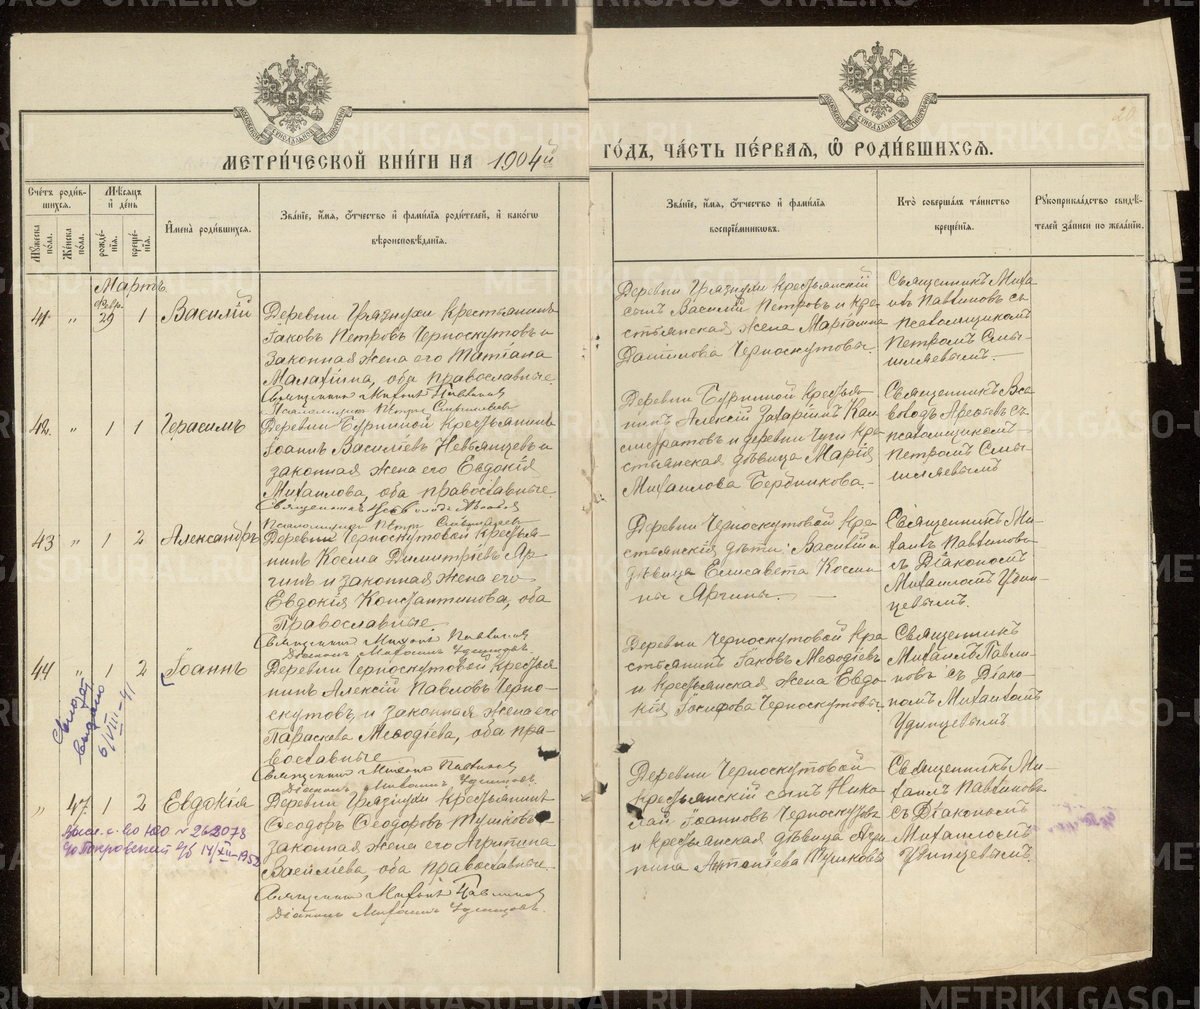 МЕТРИ́ЧЕСКОЙ КНИ́ГИ НА 1904й
ГО́ДЪ, ЧА́СТЬ ПЕ́РВАЯ, Ѿ РОДИ́ВШИХСѦ.
20
Сче́тъ роди́вшихся.
Му́жеска по́ла.
Же́нска по́ла.
Мѣ́сяцъ и́ де́нь
рожде́нія.
креще́нія.
И́мена̀ роди́вшихся.
Зва́ніе, и́мя, ѻ́тчество и́ фами́лія роди́телей, и́ како́гѡ
вѣроисповѣ́данія.
Зва́ніе, и́мя, ѻ́тчество и́ фами́лія
воспрїе́мниковъ.
Кто̀ соверша́лъ та́инство
креще́нія.
Рꙋкоприкла́дство свидѣ́-
телей за́писи по жела́нію.
Мартъ.
февр.
41. " 29 1 Василій
Деревни Грязнухи Крестьянинъ
Іаковъ Петровъ Черноскутовъ и
законная жена его Татіана
Малахіина, оба православные.
Священникъ Михаилъ
Псаломщикъ Петръ
Деревни Грязнухи Крестьянскій
сынъ Василій Петровъ и Кре-
стьянская жена Маріамна
Даніилова Черноскутовы.
Священникъ Миха-
илъ Павлиновъ съ
псаломщикомъ
Петромъ Смы-
шляевымъ.
42. " 1 1 Герасимъ
Деревни Бурниной крестьянинъ
Іоаннъ Василіевъ Невьянцевъ и
законная жена его Евдокія
Михаилова, оба православные.
Священникъ
Псаломщикъ Петръ
Деревни Бурниной Крестья-
нинъ Алексій Захаріинъ
и деревни Кре-
стьянская дѣвица Марія
Михаилова Бердникова.
Священникъ Все-
володъ съ
псаломщикомъ
Петромъ Смы-
шляевымъ
43 " 1 2 Александръ
Деревни Черноскутовой Крестья-
нинъ Косма Димитріевъ Яр-
гинъ и законная жена его
Евдокія Константинова, оба
Православные.
Священникъ Михаилъ Павлиновъ
Діаконъ Михаилъ Удинцевъ.
Деревни Черноскутовой Кре-
стьянскія дѣти: Василій и
дѣвица Елисавета Косми-
ны Яргины.
Священникъ Ми-
хаилъ Павлиновъ
съ Діакономъ
Михаиломъ Удин-
цевымъ.
44 " 1 2 Іоаннъ
Деревни Черноскутовой Крестья-
нинъ Алексій Павловъ Черно-
скутовъ и законная жена его
Параскева Меѳодіева, оба пра-
вославные
Священникъ Михаилъ Павлиновъ
Діаконъ Михаилъ Удинцовъ.
Деревни Черноскутовой Кре-
стьянинъ Іаковъ Меѳодіевъ
и Крестьянская жена Евдо-
кія Іосифова Черноскутовы.
Священникъ
Михаилъ Павли-
новъ съ Діако-
номъ Михаиломъ
Удинцевымъ
выдано
6/VIII-41
" 47. 1 2 Евдокія
Деревни Грязнухи крестьянинъ
Ѳеодоръ Ѳеодоровъ Тушковъ и
законная жена его Агрипина
Василіева, оба православные.
Священникъ Михаилъ Павлиновъ
Діаконъ Михаилъ Удинцовъ.
Деревни Черноскутовой
Крестьянскій сынъ Нико-
лай Іоанновъ Черноскутовъ
и крестьянская дѣвица Агри-
пина Тушковы
Священникъ Ми-
хаилъ Павлиновъ
съ Діакономъ
Михаиломъ
Удинцевымъ.
с-во Ю0 № 262078
Покровский с/б 14/XII-1952
METRIKI.GASO-URAL.RU